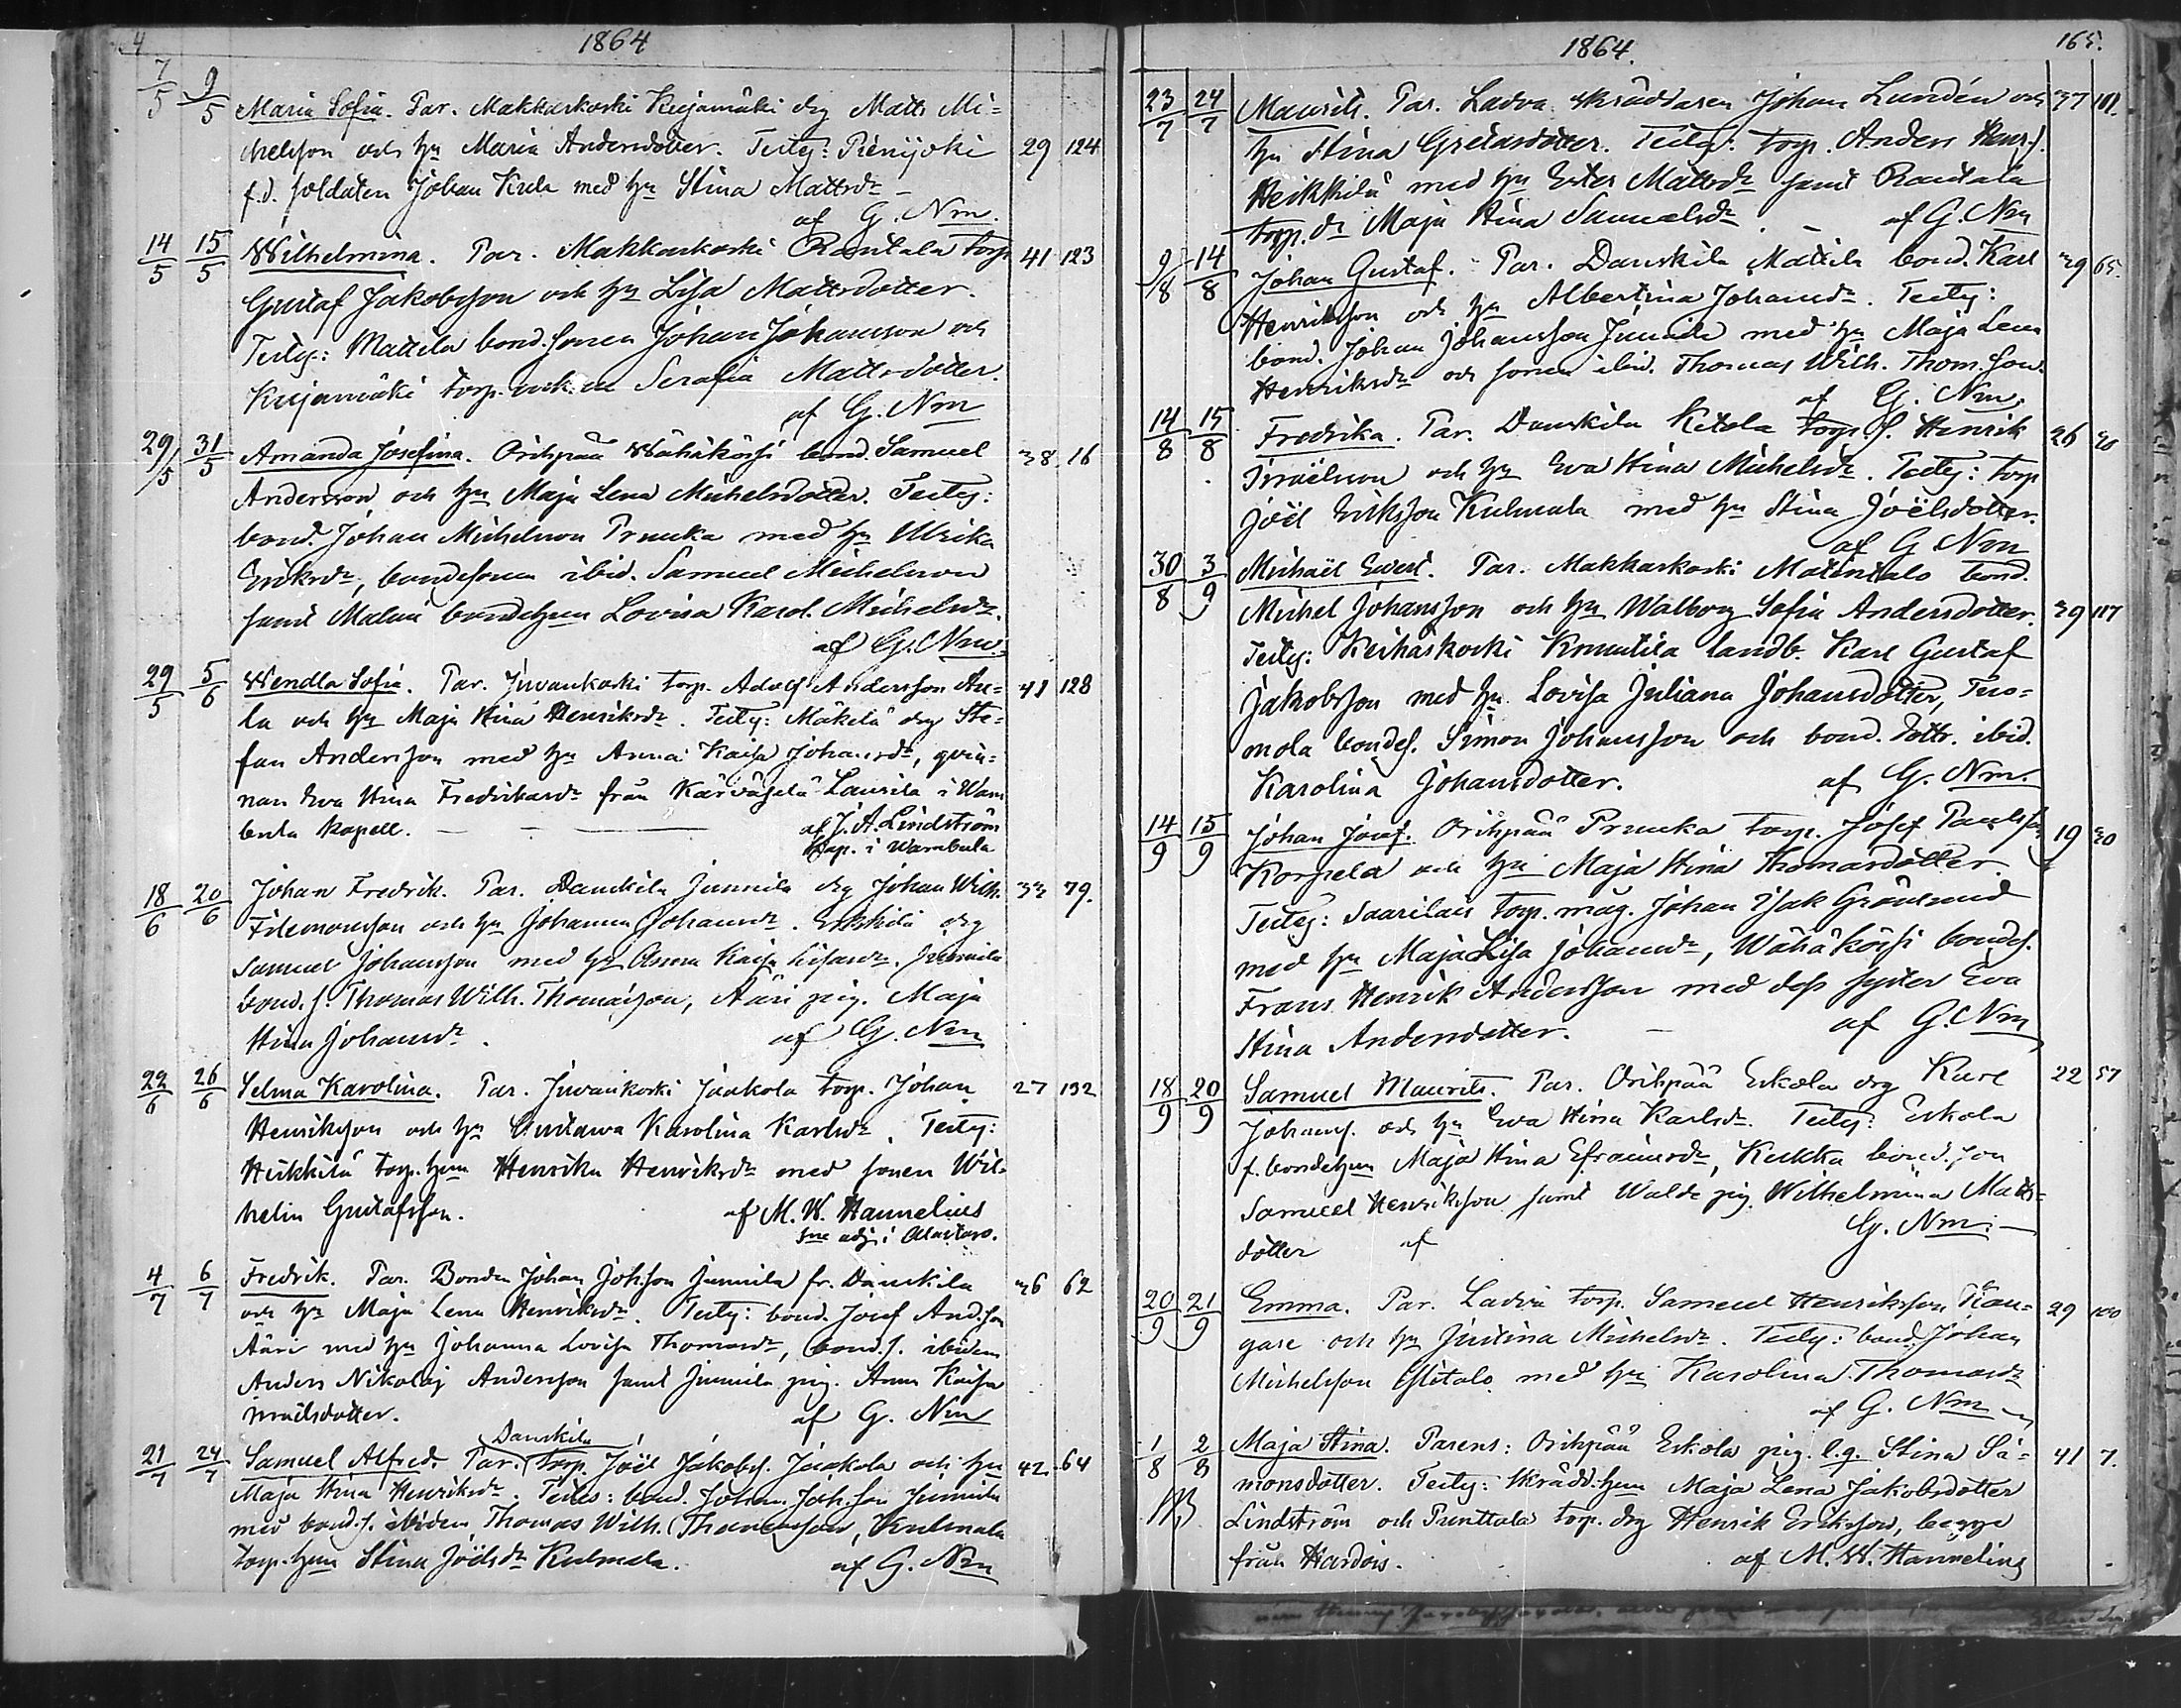 4
1864
7/5 9/5 Maria Sofia. Par. Makkarkoski Kujamäki drg Matts Mi=
chelsson och hu Maria Andersdotter. Testy: Pienijoki 29 124
f.d. soldaten Johan Kula med hu Stina Mattsdr –
af G. Nm.
14/5 15/5 Wilhelmina. Par. Makkarkoski Rantala torp 41 123
Gustaf Jakobsson och hu Lisa Mattsdotter.
Testy: Mattila bond.sonen Johan Johansson och
Kujamäki torp. Serafia Mattsdotter.
af G. Nm
29/5 31/5 Amanda Josefina. Orihpää Wähäkörsi bond. Samuel 38 16
Andersson och hu Maja Lena Michelsdotter. Testy:
bond. Johan Michelsson Prunka med hu Ulrika
Eriksdr, bondesonen ibid. Samuel Michelsson
samt Malmi bondehun Lovisa Karol. Michelsdr.
af G. Nm.
29/5 5/6 Wendla Sofia. Par. Juvankoski torp. Adolf Andersson An= 41 128
la och hu Maja Stina Henriksdr. Testy: Mäkelä drg Ste=
fan Andersson med hu Anna Kaisa Johansdr, qvin=
nan Eva Stina Fredriksdr från Kärväselä Laurila i Wam
bula kapell. – – – af J. A. Lindström
Kap. i Wambula
18/6 20/6 Johan Fredrik. Par. Danskila Junnila drg Johan Wilh. 33 79.
Filemonsson och hu Johanna Johansdr. Erkkilä drg
Samuel Johansson med hu Anna Kaisa Lisasdr. Junnila
bond.s. Thomas Wilh. Thomasson, Ääri pig. Maja
Stina Johansdr. af G. Nm
22/6 26/6 Selma Karolina. Par. Juvankoski Jaakola torp. Johan 27 132
Henriksson och hu Gustawa Karolina Karlsdr. Testy:
Heikkilä torp.hun Henrika Henriksdr med sonen Wil=
helm Gustafsson. af M. W. Hannelius
sne adj. i Alastaro.
4/7 6/7 Fredrik. Par. Bonden Johan Joh.son Junnila fr. Danskila 36 62
och hu Maja Lena Henriksdr. Testy: bond. Josef And.son
Ääri med hu Johanna Lovisa Thomasdr, bond.s. ibidem
Anders Nikolaj Andersson samt Junnila pig. Anna Kaisa
af G. Nm
Danskila
21/7 24/7 Samuel Alfred. Par. torp. Joël Jakobs. Jaakola och hu 42 64
Maja Stina Henriksdr. Testes: bond. Johan Joh.son Junnila
med bond.s. ibidem Thomas Wilh. Thomasson, Kulmala
torp.hun Stina Joëlsdr Kulmala. af G. Nm
1864. 165.
23/7 24/7 Maurits. Par. Ladva skräddaren Johan Lundén och 37 101.
hu Stina Gretasdotter. Testy: torp. Anders Henr.s.
Heikkilä med hu Ester Mattsdr samt Rantala
torp.dr Maja Stina Samuelsdr. – af G. Nm
9/8 14/8 Johan Gustaf. Par. Danskila Mattila bond. Karl 39 65.
Henriksson och hu Albertina Johansdr. Testy:
bond. Johan Johansson Junnila med hu Maja Lena
Henriksdr och sonen ibid. Thomas Wilh. Thom.son.
af G. Nm.
14/8 15/8 Fredrika. Par. Danskila Ketola torp.s. Henrik 26
Israelsson och hu Eva Stina Michelsdr. Testy: torp
Joël Eriksson Kulmala med hu Stina Joëlsdotter.
af G Nm
30/8 3/9 Michaël Evert. Par. Makkarkoski Matintalo bond.
Michel Johansson och hu Walborg Sofia Andersdotter. 39 117
Testy: Keihäskoski Knuutila landb. Karl Gustaf
Jakobsson med hu Lovisa Juliana Johansdotter, Tuo=
mola bondes. Simon Johansson och bond.dottr. ibid.
Karolina Johansdotter. af G. Nm.
14/9 15/9 Johan Josef. Orihpää Prunka torp. Josef Paulsson 19
Korpela och hu Maja Stina Thomasdotter.
Testy: Saarilais torp.måg. Johan Isak Grönlund
med hu Maja Lisa Johansdr, Wähäkörsi bondes.
Frans Henrik Andersson med dess syster Eva
Stina Andersdotter. – af G. Nm
18/9 20/9 Samuel Maurits. Par. Orihpää Eskola drg Karl 22 57
Johans. och hu Eva Stina Karlsdr. Testy: Eskola
f. bondehun Maja Stina Efraimsdr, Kukka bond.son
Samuel Henriksson samt Walde pig. Wilhelmina Matts=
dotter af G. Nm –
20/9 21/9 Emma. Par. Ladva torp. Samuel Henriksson Kan= 29 100
gare och hu Justina Michelsdr. Testy: bond. Johan
Michelsson Ylitalo med hu Karolina Thomasdr
af G. Nm
1/8 2/8 Maja Stina. Parens: Orihpää Eskola pig. l.q. Stina Si= 41 7.
monsdotter. Testy: Skrädd.hun Maja Lena Jakobsdotter
NB. Lindström och Punttala torp. drg Henrik Eriksson, begge
från Hardois. af M. W. Hannelius